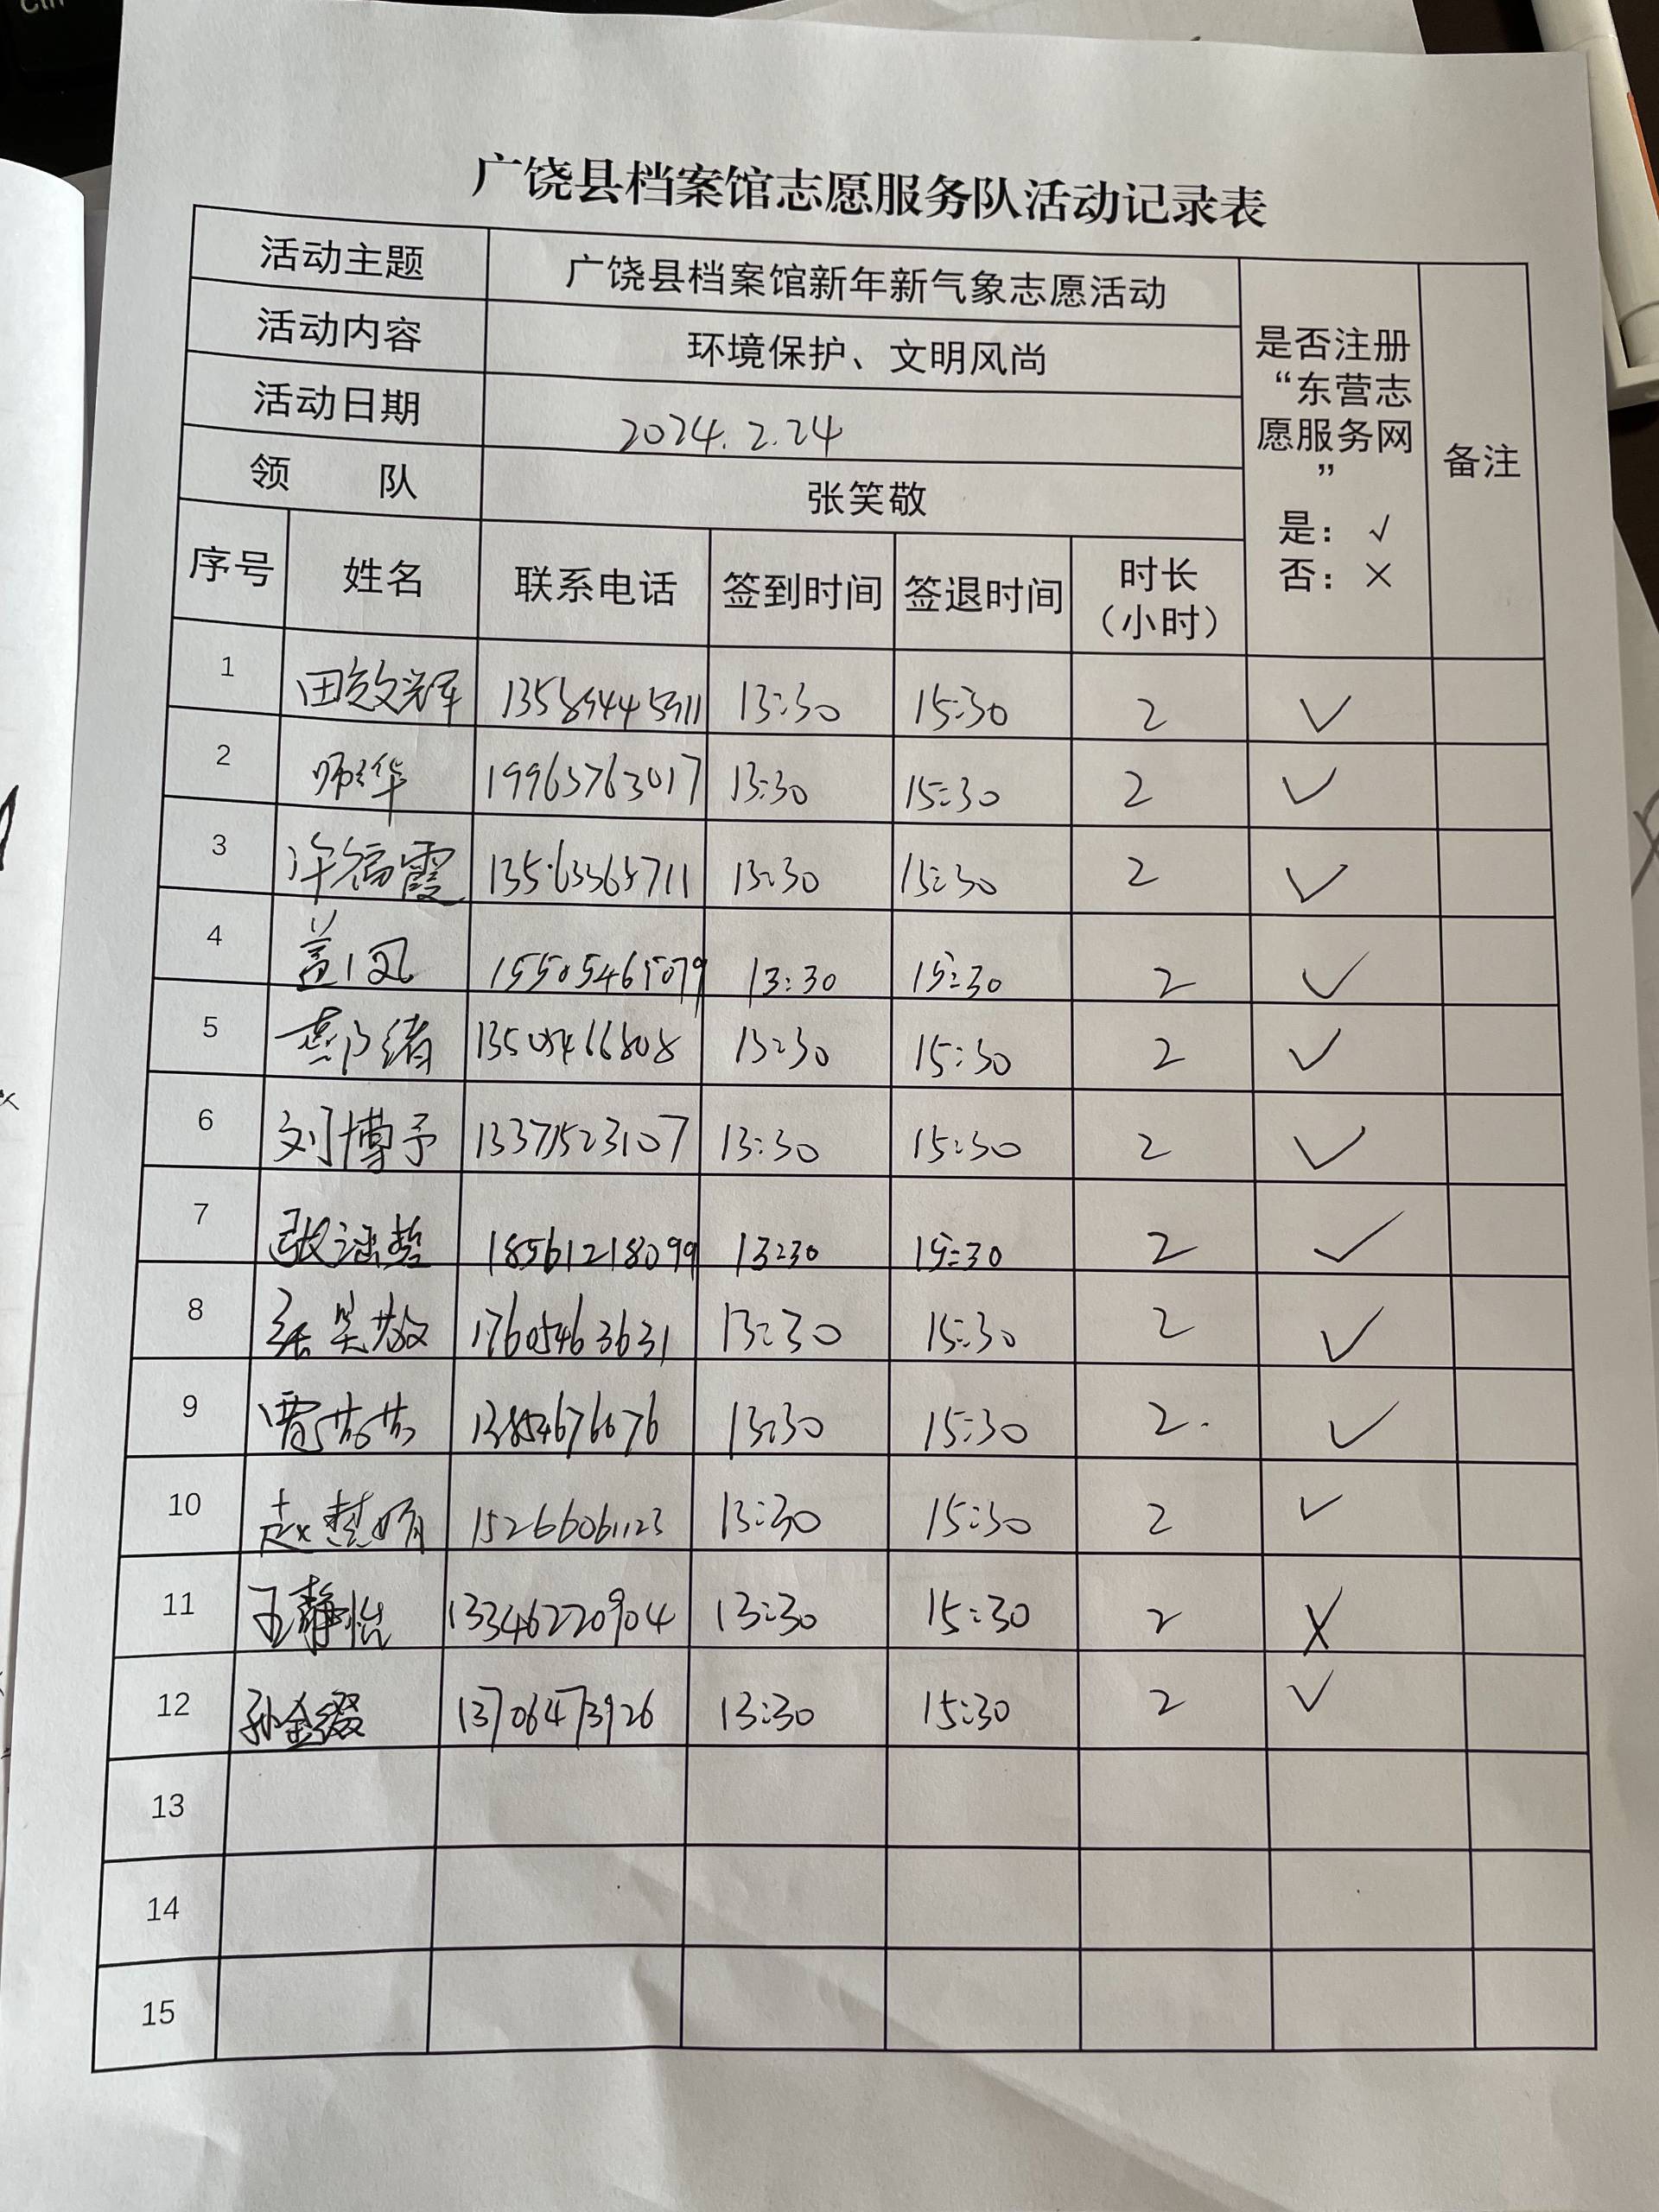 广饶县档案馆志愿服务队活动记录表
活动主题 广饶县档案馆新年新气象志愿活动
活动内容 环境保护、文明风尚
活动日期 2024.2.24
领 队 张笑敬
是否注册
“东营志
愿服务网
”
是：√
否：×
备注
序号 姓名 联系电话 签到时间 签退时间 时长
（小时）
1 田效辉 13:30 15:30 2 √
2 19963763017 13:30 15:30 2 √
3 许福霞 13563365711 13:30 15:30 2 √
4 15505465079 13:30 15:30 2 √
5 13:30 15:30 2 √
6 刘博予 13371523107 13:30 15:30 2 √
7 18561218099 13:30 15:30 2 √
8 张笑敬 17605463631 13:30 15:30 2 √
9 13854676076 13:30 15:30 2 √
10 赵楚娟 15266061123 13:30 15:30 2 √
11 王静怡 13346220904 13:30 15:30 2 ×
12 孙金缀 13706473926 13:30 15:30 2 √
13
14
15